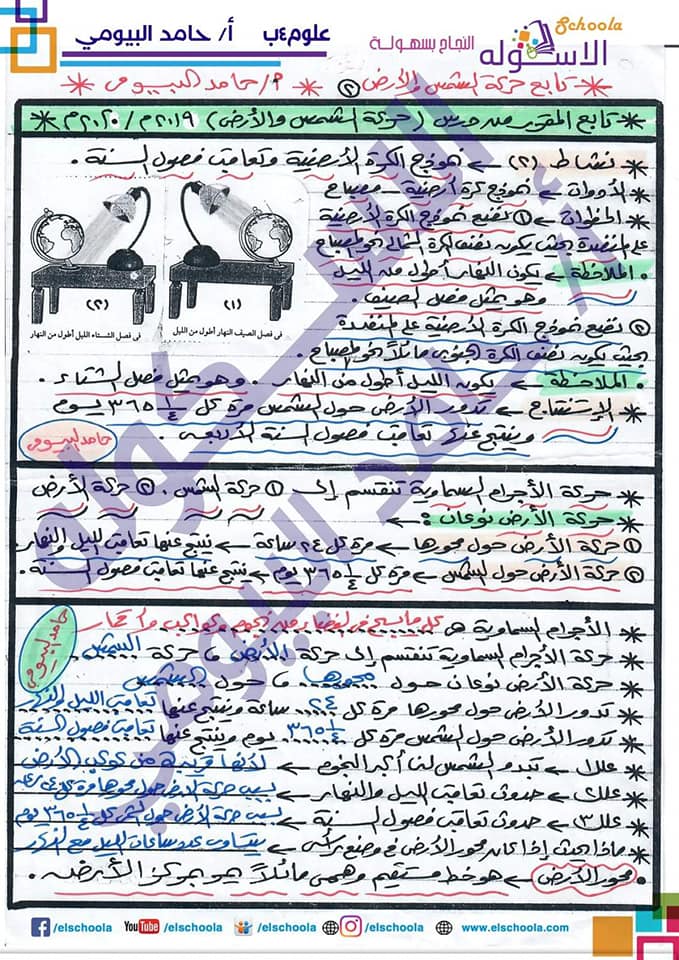 Schoola
الاسكوله
النجاح بسهولة
علوم ٤ب
أ/ حامد البيومي
* تابع حركة الشمس والأرض ② * أ/ حامد البيومى *
* تابع المقرر من درس ( حركة الشمس والأرض ) ٢٠١٩م / ٢٠٢٠م *
* نشاط (٢) ← نموذج الكرة الأرضية وتعاقب فصول السنة .
* الأدوات ← نموذج كرة أرضية - مصباح
* الخطوات ← ① نضع نموذج الكرة الأرضية
على المنضدة بحيث يكون نصف الكرة الشمالى نحو المصباح
• الملاحظة ← يكون النهار أطول من الليل
وهو يمثل فصل الصيف .
(١)
(٢)
فى فصل الصيف النهار أطول من الليل
فى فصل الشتاء الليل أطول من النهار
② نضع نموذج الكرة الأرضية على المنضدة
بحيث يكون نصف الكرة الجنوبى مائلاً نحو المصباح .
• الملاحظة ← يكون الليل أطول من النهار . وهو يمثل فصل الشتاء .
* الإستنتاج ← تدور الأرض حول الشمس مرة كل ٣٦٥ ١/٤ يوم
وينتج عنه تعاقب فصول السنة الأربعة .
حامد البيومى
* حركة الأجرام السماوية تنقسم إلى ① حركة الشمس . ② حركة الأرض
* حركة الأرض نوعان : ←
① حركة الأرض حول محورها ← مرة كل ٢٤ ساعة ← ينتج عنها تعاقب الليل والنهار .
② حركة الأرض حول الشمس ← مرة كل ٣٦٥ ١/٤ يوم ← ينتج عنها تعاقب فصول السنة .
حامد البيومى
* الأجرام السماوية هى كل ما يسبح فى الفضاء من نجوم وكواكب وأقمار
* حركة الأجرام السماوية تنقسم إلى حركة الأرض و حركة الشمس
* حركة الأرض نوعان حول محورها و حول الشمس
* تدور الأرض حول محورها مرة كل ٢٤ ساعة وينتج عنها تعاقب الليل والنهار
* تدور الأرض حول الشمس مرة كل ٣٦٥ ١/٤ يوم وينتج عنها تعاقب فصول السنة
* علل١ ← تبدو الشمس لنا أكبر النجوم ← لأنها قريبة من كوكب الأرض
* علل٢ ← حدوث تعاقب الليل والنهار ← بسبب حركة الأرض حول محورها مرة كل ٢٤ ساعة
* علل٣ ← حدوث تعاقب فصول السنة ← بسبب حركة الأرض حول الشمس كل ٣٦٥ ١/٤ يوم
* ماذا يحدث إذا كان محور الأرض فى وضع رأسى ← يتساوى عدد ساعات الليل مع النهار
• محور الأرض ← هو خط مستقيم وهمى مائلاً يمر بمركز الأرض .
/elschoola
YouTube /elschoola
/elschoola
/elschoola
www.elschoola.com
الاسكوله
أ/ حامد البيومي